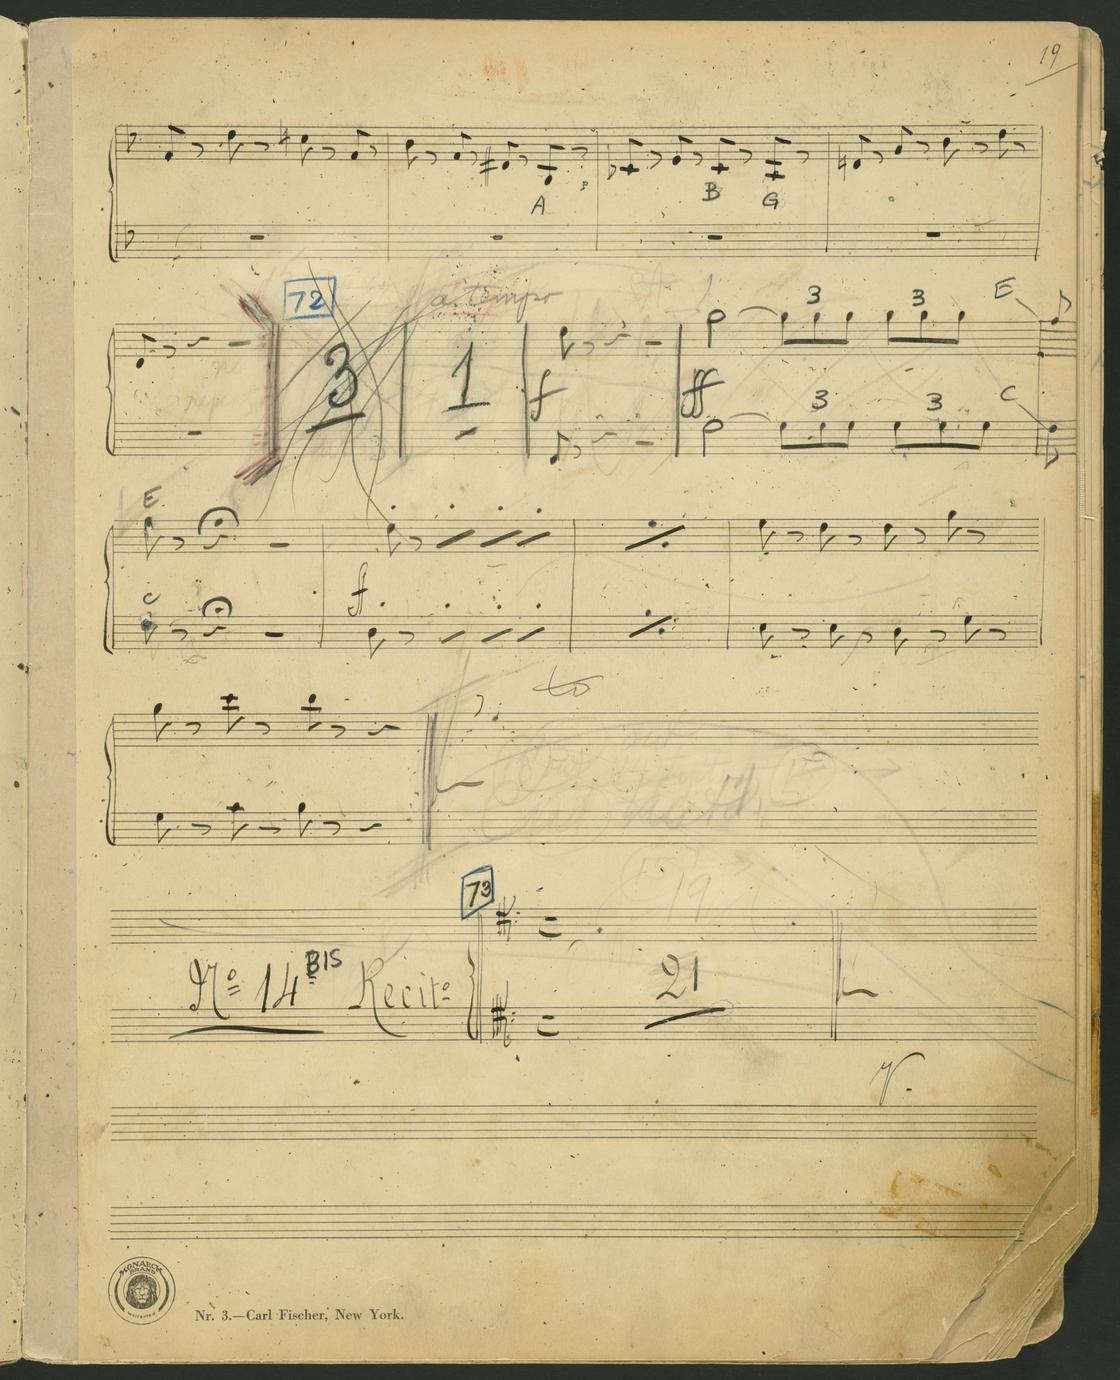 19
A B G
72 a tempo E
3 3
3 1 f ff
3 3 C
E
C f
to
73
No 14 BIS Recito 21
V.
MONARCH
BRAND
Nr. 3.—Carl Fischer, New York.